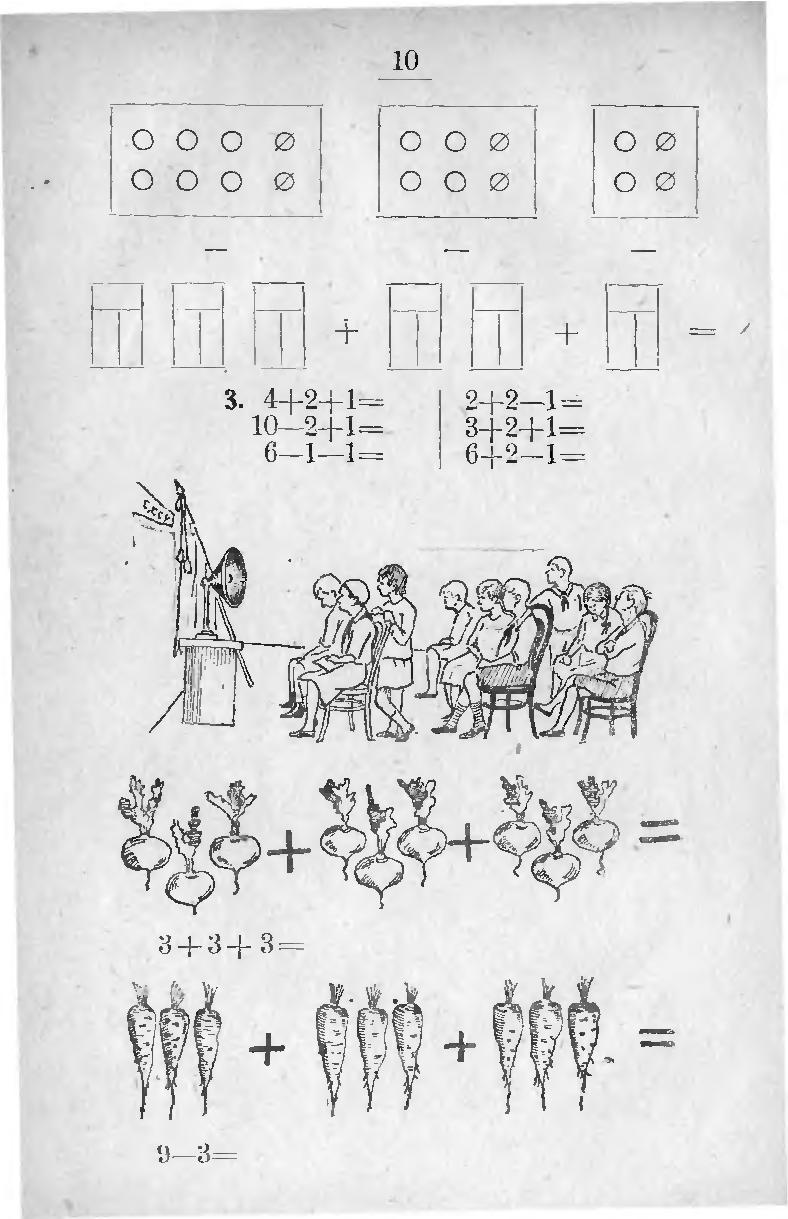 10
— — —
+ + =
3. 4+2+1= 2+2—1=
10—2+1= 3+2+1=
6—1—1= 6+2—1=
СССР
+ + =
3+3+3=
+ + =
9—3=